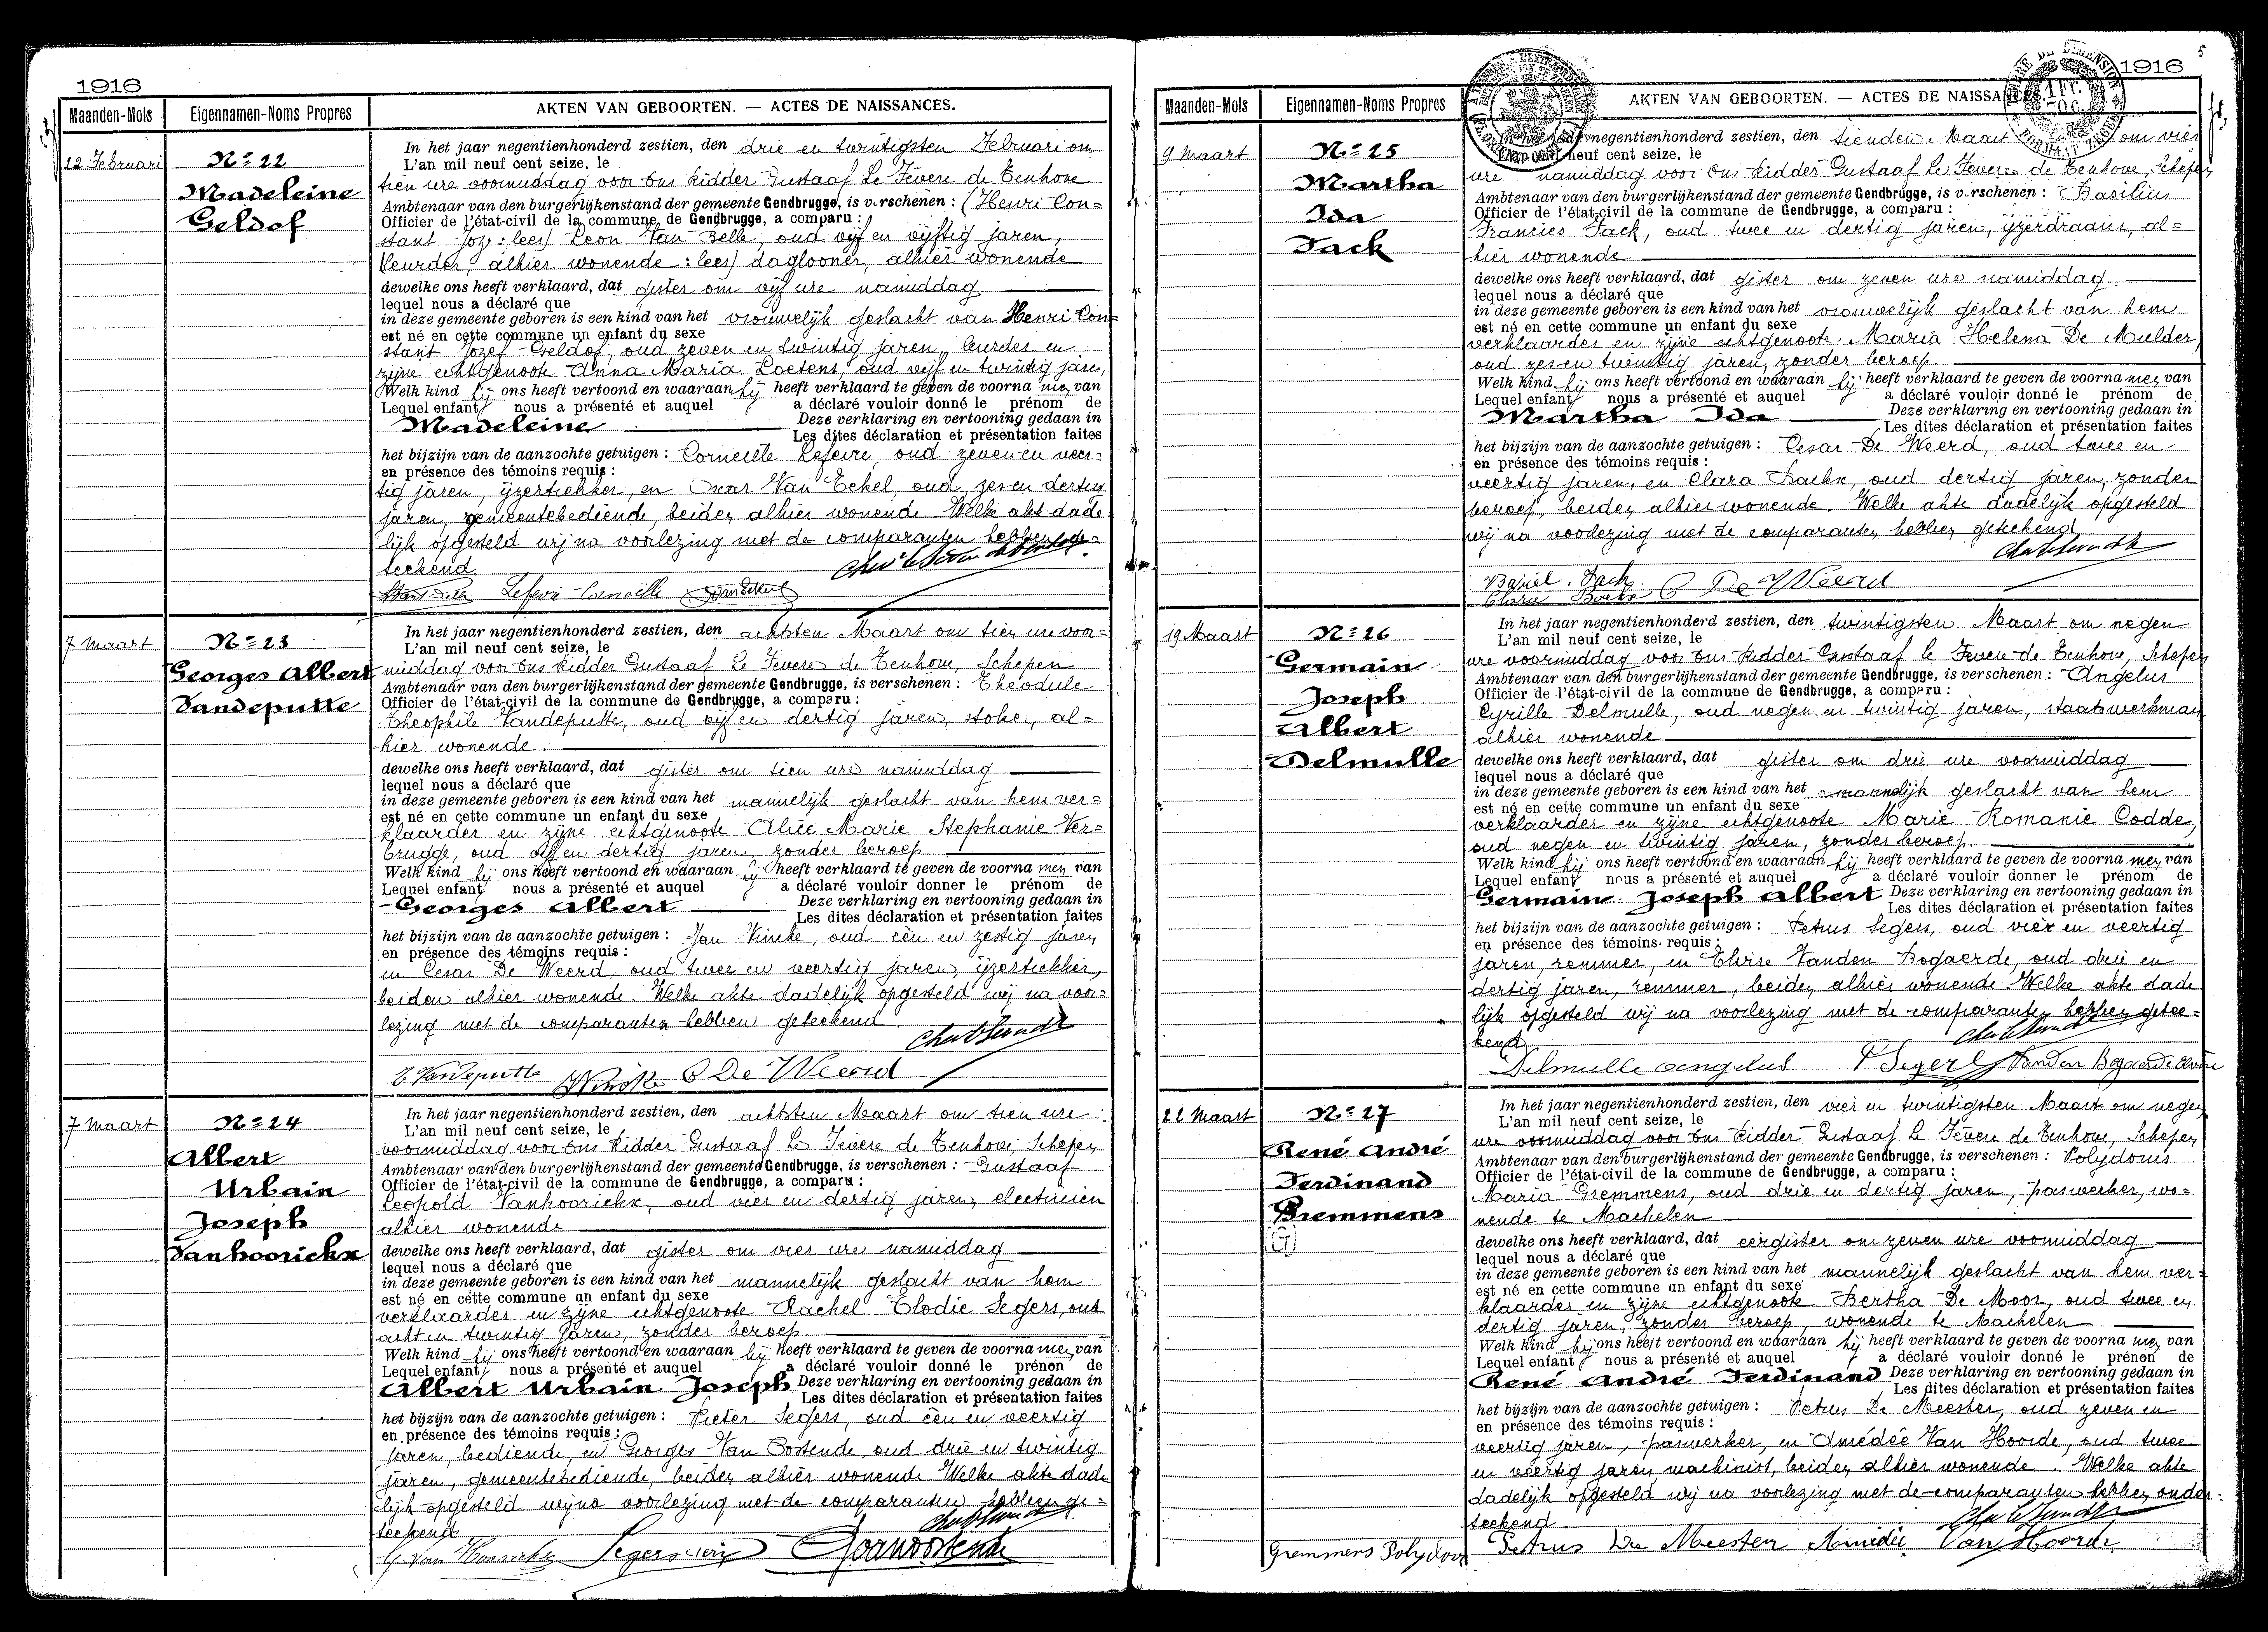 1916
Maanden-Mois
Eigennamen-Noms Propres
AKTEN VAN GEBOORTEN. — ACTES DE NAISSANCES.
22 Februari
No 22
Madeleine
Geldof
In het jaar negentienhonderd zestien, den drie en twintigsten Februari om
L'an mil neuf cent seize, le
tien ure voormiddag voor Ons Ridder Gustaaf Le Fevere de Tenhove
Ambtenaar van den burgerlijkenstand der gemeente Gendbrugge, is verschenen : (Henri Con=
Officier de l'état-civil de la commune de Gendbrugge, a comparu :
stant Joz: lees) Leon Van Zelle, oud vijf en vijftig jaren,
(leurder, alhier wonende : lees) daglooner, alhier wonende
dewelke ons heeft verklaard, dat gister om vijf ure namiddag
lequel nous a déclaré que
in deze gemeente geboren is een kind van het vrouwelijk geslacht van Henri Con=
est né en cette commune un enfant du sexe
stant Jozef Geldof, oud zeven en twintig jaren, leurder en
zijne echtgenoote Anna Maria Loetens, oud vijf en twintig jaren
Welk kind hij ons heeft vertoond en waaraan hij heeft verklaard te geven de voorna men van
Lequel enfant nous a présenté et auquel a déclaré vouloir donné le prénom de
Madeleine Deze verklaring en vertooning gedaan in
Les dites déclaration et présentation faites
het bijzijn van de aanzochte getuigen : Corneille Lefevre, oud zeven en veer=
en présence des témoins requis :
tig jaren, ijzertrekker, en Oscar Van Eekel, oud zes en dertig
jaren, gemeentebediende, beiden alhier wonende Welke akt dade
lijk opgesteld wij na voorlezing met de comparanten hebben ge=
teekend
Lefevre Corneille
7 Maart
No 23
Georges Albert
Vandeputte
In het jaar negentienhonderd zestien, den achtsten Maart om tien ure voor=
L'an mil neuf cent seize, le
middag voor Ons Ridder Gustaaf Le Fevere de Tenhove, Schepen
Ambtenaar van den burgerlijkenstand der gemeente Gendbrugge, is verschenen : Theodule
Officier de l'état-civil de la commune de Gendbrugge, a comparu :
Theophile Vandeputte, oud vijf en dertig jaren, stoker, al=
hier wonende.
dewelke ons heeft verklaard, dat gister om tien ure namiddag
lequel nous a déclaré que
in deze gemeente geboren is een kind van het mannelijk geslacht van hem ver=
est né en cette commune un enfant du sexe
klaarder en zijne echtgenoote Alice Marie Stephanie Ver=
brugge, oud vijf en dertig jaren, zonder beroep
Welk kind hij ons heeft vertoond en waaraan hij heeft verklaard te geven de voorna men van
Lequel enfant nous a présenté et auquel a déclaré vouloir donner le prénom de
Georges Albert Deze verklaring en vertooning gedaan in
Les dites déclaration et présentation faites
het bijzijn van de aanzochte getuigen : Jan Vincke, oud één en zestig jaren
en présence des témoins requis :
en Cesar De Weerd, oud twee en veertig jaren, ijzertrekker,
beiden alhier wonende. Welke akte dadelijk opgesteld wij na voor=
lezing met de comparanten hebben geteekend
T. Vandeputte Vincke C De Weerd
7 Maart
No 24
Albert
Urbain
Joseph
Vanhoorickx
In het jaar negentienhonderd zestien, den achtsten Maart om tien ure
L'an mil neuf cent seize, le
voormiddag voor Ons Ridder Gustaaf Le Fevere de Tenhove, Schepen
Ambtenaar van den burgerlijkenstand der gemeente Gendbrugge, is verschenen : Gustaaf
Officier de l'état-civil de la commune de Gendbrugge, a comparu :
Leopold Vanhoorickx, oud vier en dertig jaren, electricien
alhier wonende
dewelke ons heeft verklaard, dat gister om vier ure namiddag
lequel nous a déclaré que
in deze gemeente geboren is een kind van het mannelijk geslacht van hem
est né en cette commune un enfant du sexe
verklaarder en zijne echtgenoote Rachel Elodie Segers, oud
acht en twintig jaren, zonder beroep
Welk kind hij ons heeft vertoond en waaraan hij heeft verklaard te geven de voorna men van
Lequel enfant nous a présenté et auquel a déclaré vouloir donné le prénon de
Albert Urbain Joseph Deze verklaring en vertooning gedaan in
Les dites déclaration et présentation faites
het bijzijn van de aanzochte getuigen : Pieter Segers, oud één en veertig
en présence des témoins requis :
jaren, bediende, en Georges Van Oostende oud drie en twintig
jaren, gemeentebediende, beiden alhier wonende Welke akte dade
lijk opgesteld wij na voorlezing met de comparanten hebben ge=
teekend
1916
5
Maanden-Mois
Eigennamen-Noms Propres
AKTEN VAN GEBOORTEN. — ACTES DE NAISSANCES.
9 Maart
No 25
Martha
Ida
Tack
negentienhonderd zestien, den tienden Maart om vier
neuf cent seize, le
ure namiddag voor Ons Ridder Gustaaf Le Fevere de Tenhove, Schepen
Ambtenaar van den burgerlijkenstand der gemeente Gendbrugge, is verschenen : Basilius
Officier de l'état-civil de la commune de Gendbrugge, a comparu :
Francies Tack, oud twee en dertig jaren, ijzerdraaier, al=
hier wonende
dewelke ons heeft verklaard, dat gister om zeven ure namiddag
lequel nous a déclaré que
in deze gemeente geboren is een kind van het vrouwelijk geslacht van hem
est né en cette commune un enfant du sexe
verklaarder en zijne echtgenoote Maria Helena De Mulder,
oud zes en twintig jaren, zonder beroep
Welk kind hij ons heeft vertoond en waaraan hij heeft verklaard te geven de voorna men van
Lequel enfant nous a présenté et auquel a déclaré vouloir donné le prénom de
Martha Ida Deze verklaring en vertooning gedaan in
Les dites déclaration et présentation faites
het bijzijn van de aanzochte getuigen : Cesar De Weerd, oud twee en
en présence des témoins requis :
veertig jaren, en Clara Boekx, oud dertig jaren, zonder
beroep, beiden alhier wonende. Welke akte dadelijk opgesteld
wij na voorlezing met de comparanten hebben geteekend
Basiel Tack C De Weerd
19 Maart
No 26
Germain
Joseph
Albert
Delmulle
In het jaar negentienhonderd zestien, den twintigsten Maart om negen
L'an mil neuf cent seize, le
ure voormiddag voor Ons Ridder Gustaaf le Fevere de Tenhove, Schepen
Ambtenaar van den burgerlijkenstand der gemeente Gendbrugge, is verschenen : Angelus
Officier de l'état-civil de la commune de Gendbrugge, a comparu :
Cyrille Delmulle, oud negen en twintig jaren, staatswerkman
alhier wonende
dewelke ons heeft verklaard, dat gister om drie ure voormiddag
lequel nous a déclaré que
in deze gemeente geboren is een kind van het mannelijk geslacht van hem
est né en cette commune un enfant du sexe
verklaarder en zijne echtgenoote Marie Romanie Codde,
oud negen en twintig jaren, zonder beroep
Welk kind hij ons heeft vertoond en waaraan hij heeft verklaard te geven de voorna men van
Lequel enfant nous a présenté et auquel a déclaré vouloir donner le prénom de
Germain Joseph Albert Deze verklaring en vertooning gedaan in
Les dites déclaration et présentation faites
het bijzijn van de aanzochte getuigen : Petrus Segers, oud vier en veertig
en présence des témoins requis :
jaren, remmer, en Elvire Vanden Bogaerde, oud drie en
dertig jaren, remmer, beiden alhier wonende Welke akte dade
lijk opgesteld wij na voorlezing met de comparanten hebben getee=
kend
Delmulle Angelus P Segers Vanden Bogaerde Elvire
22 Maart
No 27
René André
Ferdinand
Bremmens
(G)
In het jaar negentienhonderd zestien, den vier en twintigsten Maart om negen
L'an mil neuf cent seize, le
ure voormiddag voor Ons Ridder Gustaaf Le Fevere de Tenhove, Schepen
Ambtenaar van den burgerlijkenstand der gemeente Gendbrugge, is verschenen : Polydorus
Officier de l'état-civil de la commune de Gendbrugge, a comparu :
Maria Gremmens, oud drie en dertig jaren, paswerker, wo=
nende te Machelen
dewelke ons heeft verklaard, dat eergister om zeven ure voormiddag
lequel nous a déclaré que
in deze gemeente geboren is een kind van het mannelijk geslacht van hem ver=
est né en cette commune un enfant du sexe
klaarder en zijne echtgenoote Bertha De Moor, oud twee en
dertig jaren, zonder beroep, wonende te Machelen
Welk kind hij ons heeft vertoond en waaraan hij heeft verklaard te geven de voorna men van
Lequel enfant nous a présenté et auquel a déclaré vouloir donné le prénon de
René André Ferdinand Deze verklaring en vertooning gedaan in
Les dites déclaration et présentation faites
het bijzijn van de aanzochte getuigen : Petrus De Meester, oud zeven en
en présence des témoins requis :
veertig jaren, paswerker, en Amédée Van Hoorde, oud twee
en veertig jaren, machinist, beiden alhier wonende. Welke akte
dadelijk opgesteld wij na voorlezing met de comparanten hebben onder=
teekend
Gremmens Polydoor Petrus De Meester Amédée Van Hoorde